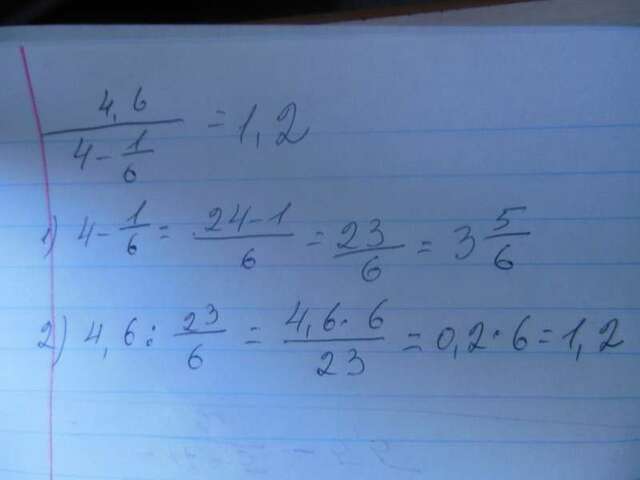 4,6 / (4 - 1/6) = 1,2
1) 4 - 1/6 = 24-1/6 = 23/6 = 3 5/6
2) 4,6 : 23/6 = 4,6 · 6/23 = 0,2 · 6 = 1,2